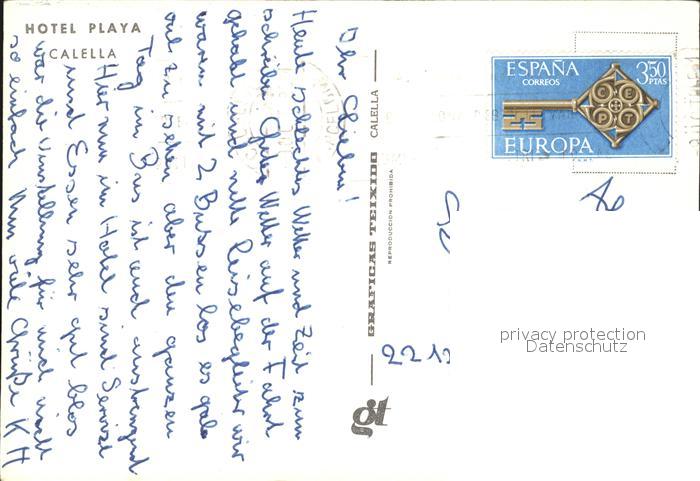 HOTEL PLAYA
CALELLA
Ihr Lieben!
Heute schlechtes Wetter und Zeit zum
schreiben. Gutes Wetter auf der Fahrt
gehabt und nette Reisebegleiter wir
waren mit 2 Bussen los es gab
viel zu sehen aber den ganzen
Tag im Bus ist auch anstrengend
Hier nun im Hotel sind Service
und Essen sehr gut blos
war die Umstellung für mich nicht
so einfach Nun viele Grüße K H
GRAFICAS TEIXIDO CALELLA
REPRODUCCION PROHIBIDA
gt
ESPAÑA
CORREOS
3,50
PTAS
CEPT
EUROPA
22 13
privacy protection
Datenschutz